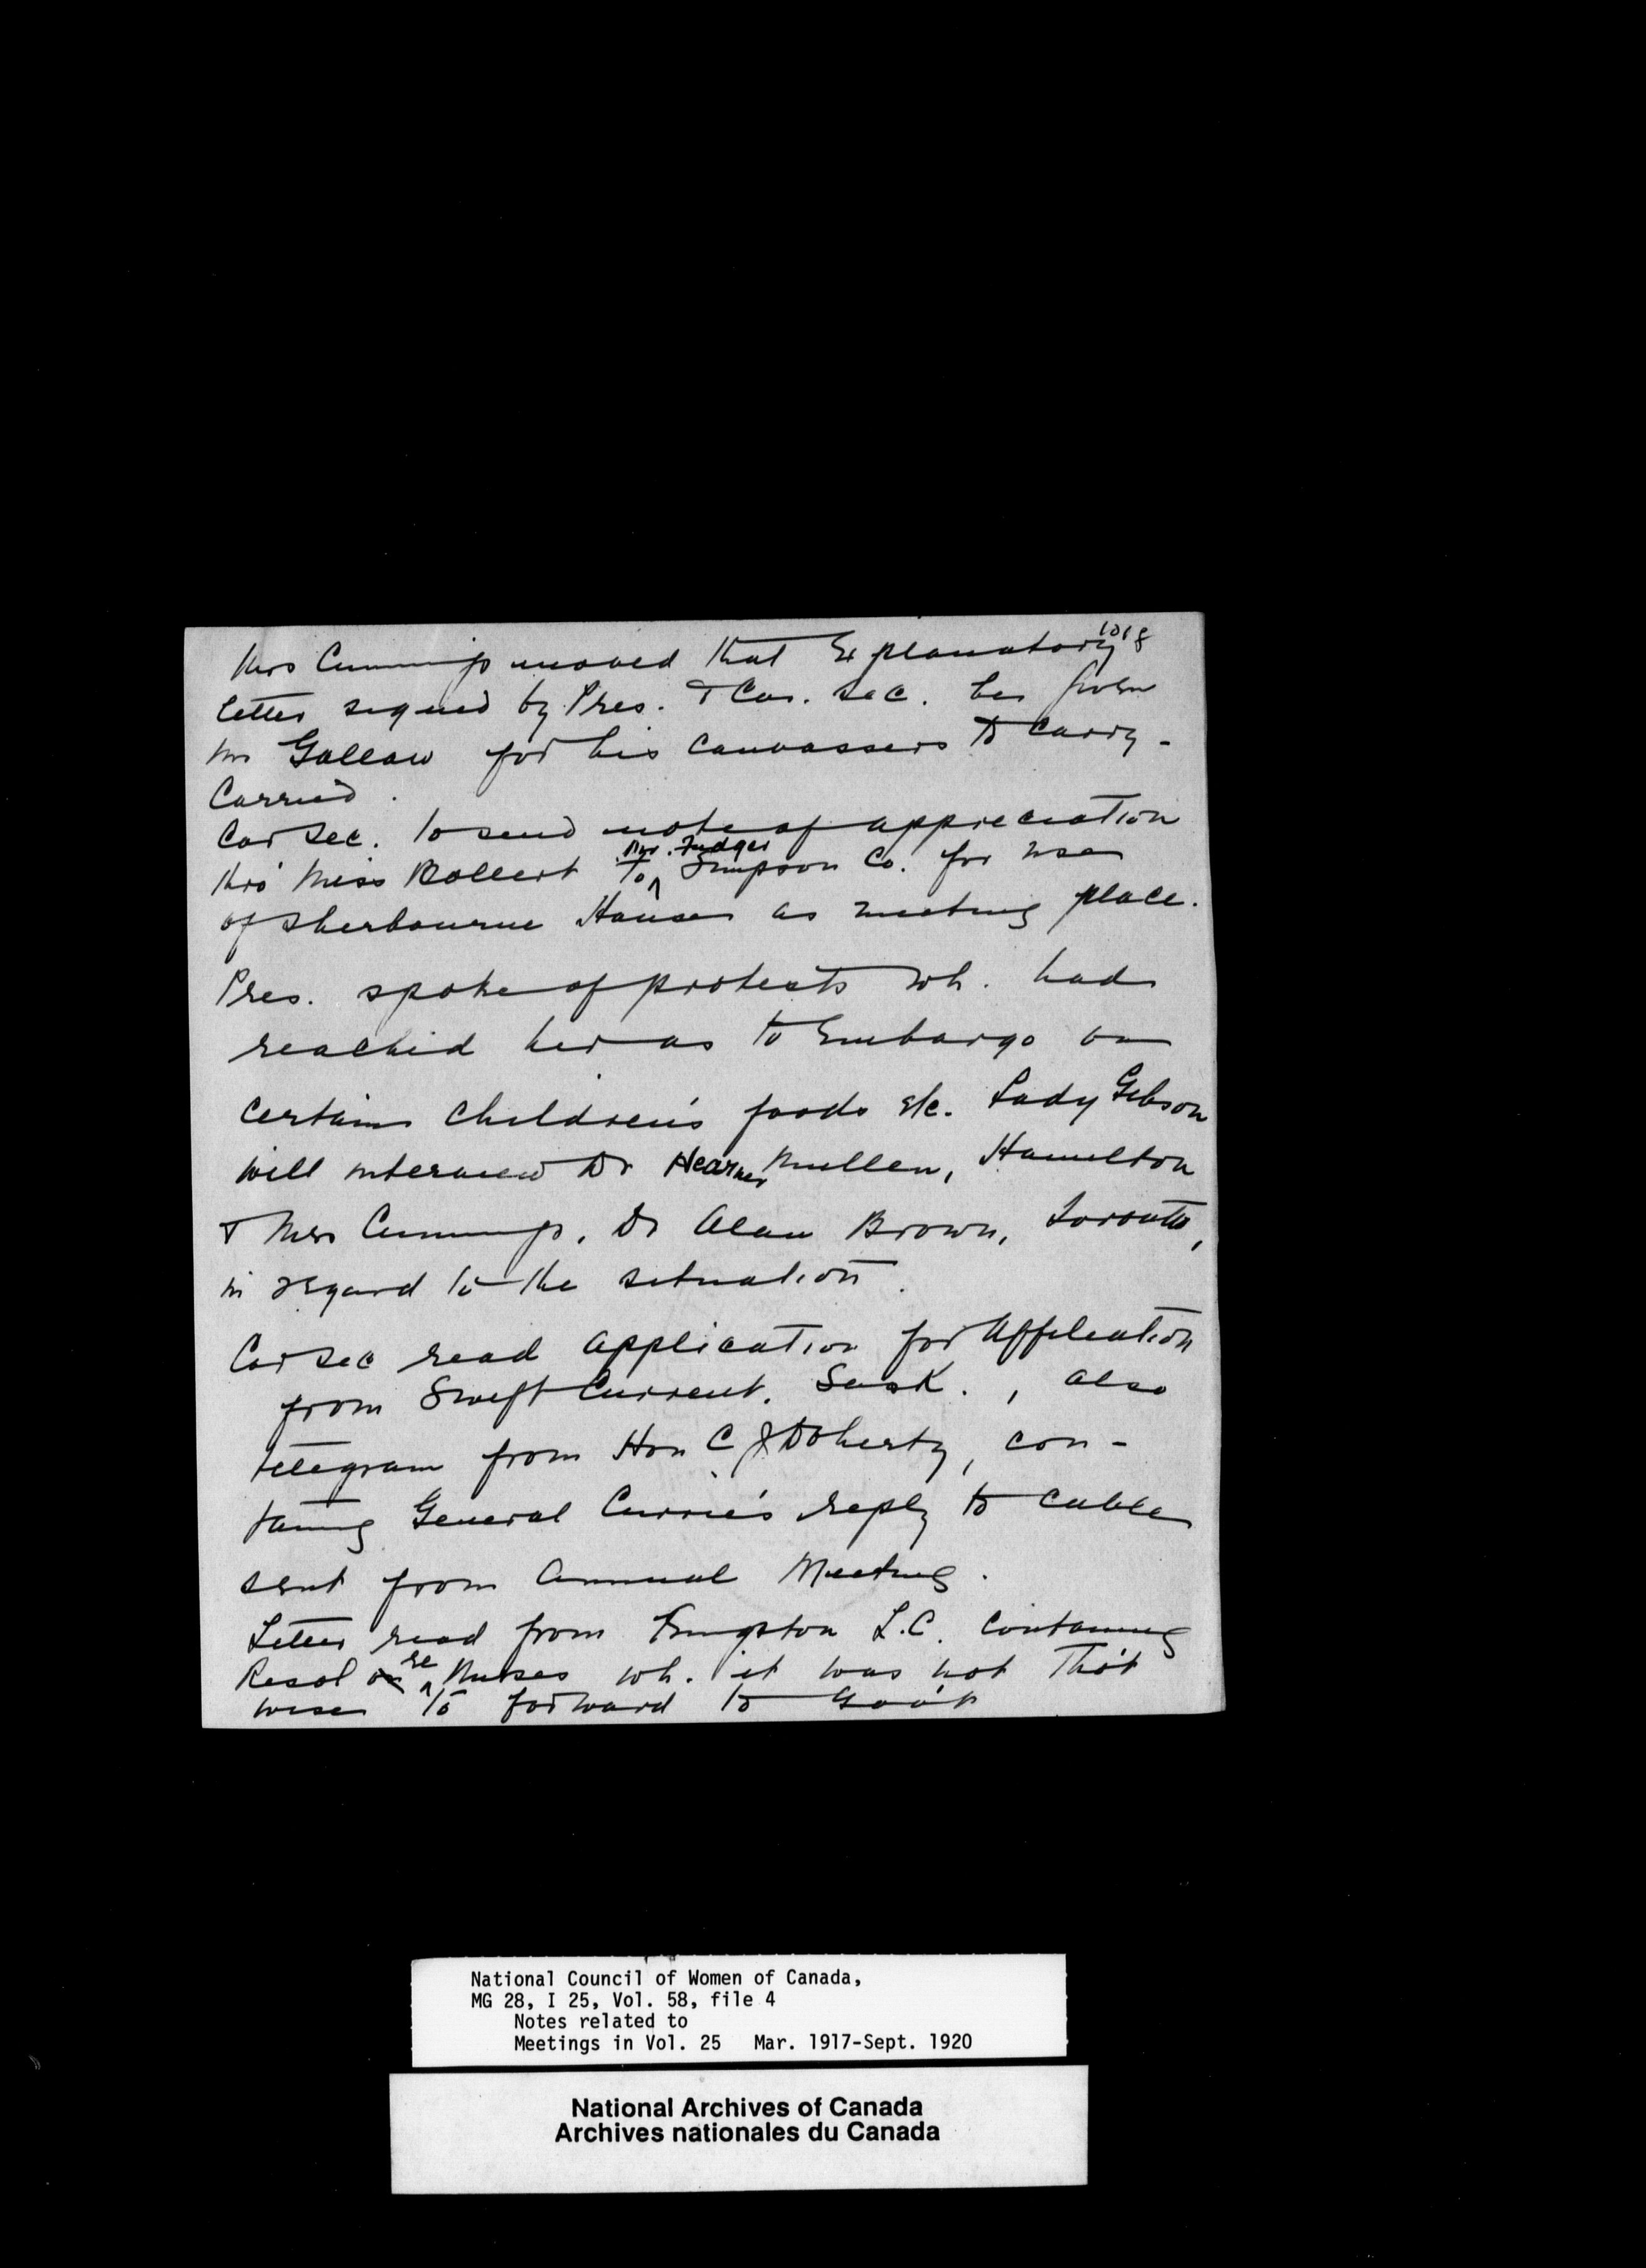 1018
Mrs Cummings moved that Explanatory
letter signed by Pres. & Cor. Sec. be given
Mr Gallow for his canvassers to carry -
Carried.
Cor Sec. to send note of appreciation
thro' Miss Bollert to ^ Mr. Fudger Simpson Co. for use
of Sherbourne House as meeting place.
Pres. spoke of protests wh. had
reached her as to Embargo on
certain children's foods etc. Lady Gibson
will interview Dr Mullen, Hamilton
& Mrs Cummings, Dr Alan Brown, Toronto,
in regard to the situation.
Cor Sec read application for Affiliation
from Swift Current, Sask., also
telegram from Hon C J Doherty, con-
taing General Currie's reply to cable
sent from Annual Meeting.
Letter read from Kingston L.C. containing
Resol on ^ re Nurses wh. it was not tho't
wise to forward to Gov't
National Council of Women of Canada,
MG 28, I 25, Vol. 58, file 4
Notes related to
Meetings in Vol. 25 Mar. 1917-Sept. 1920
National Archives of Canada
Archives nationales du Canada